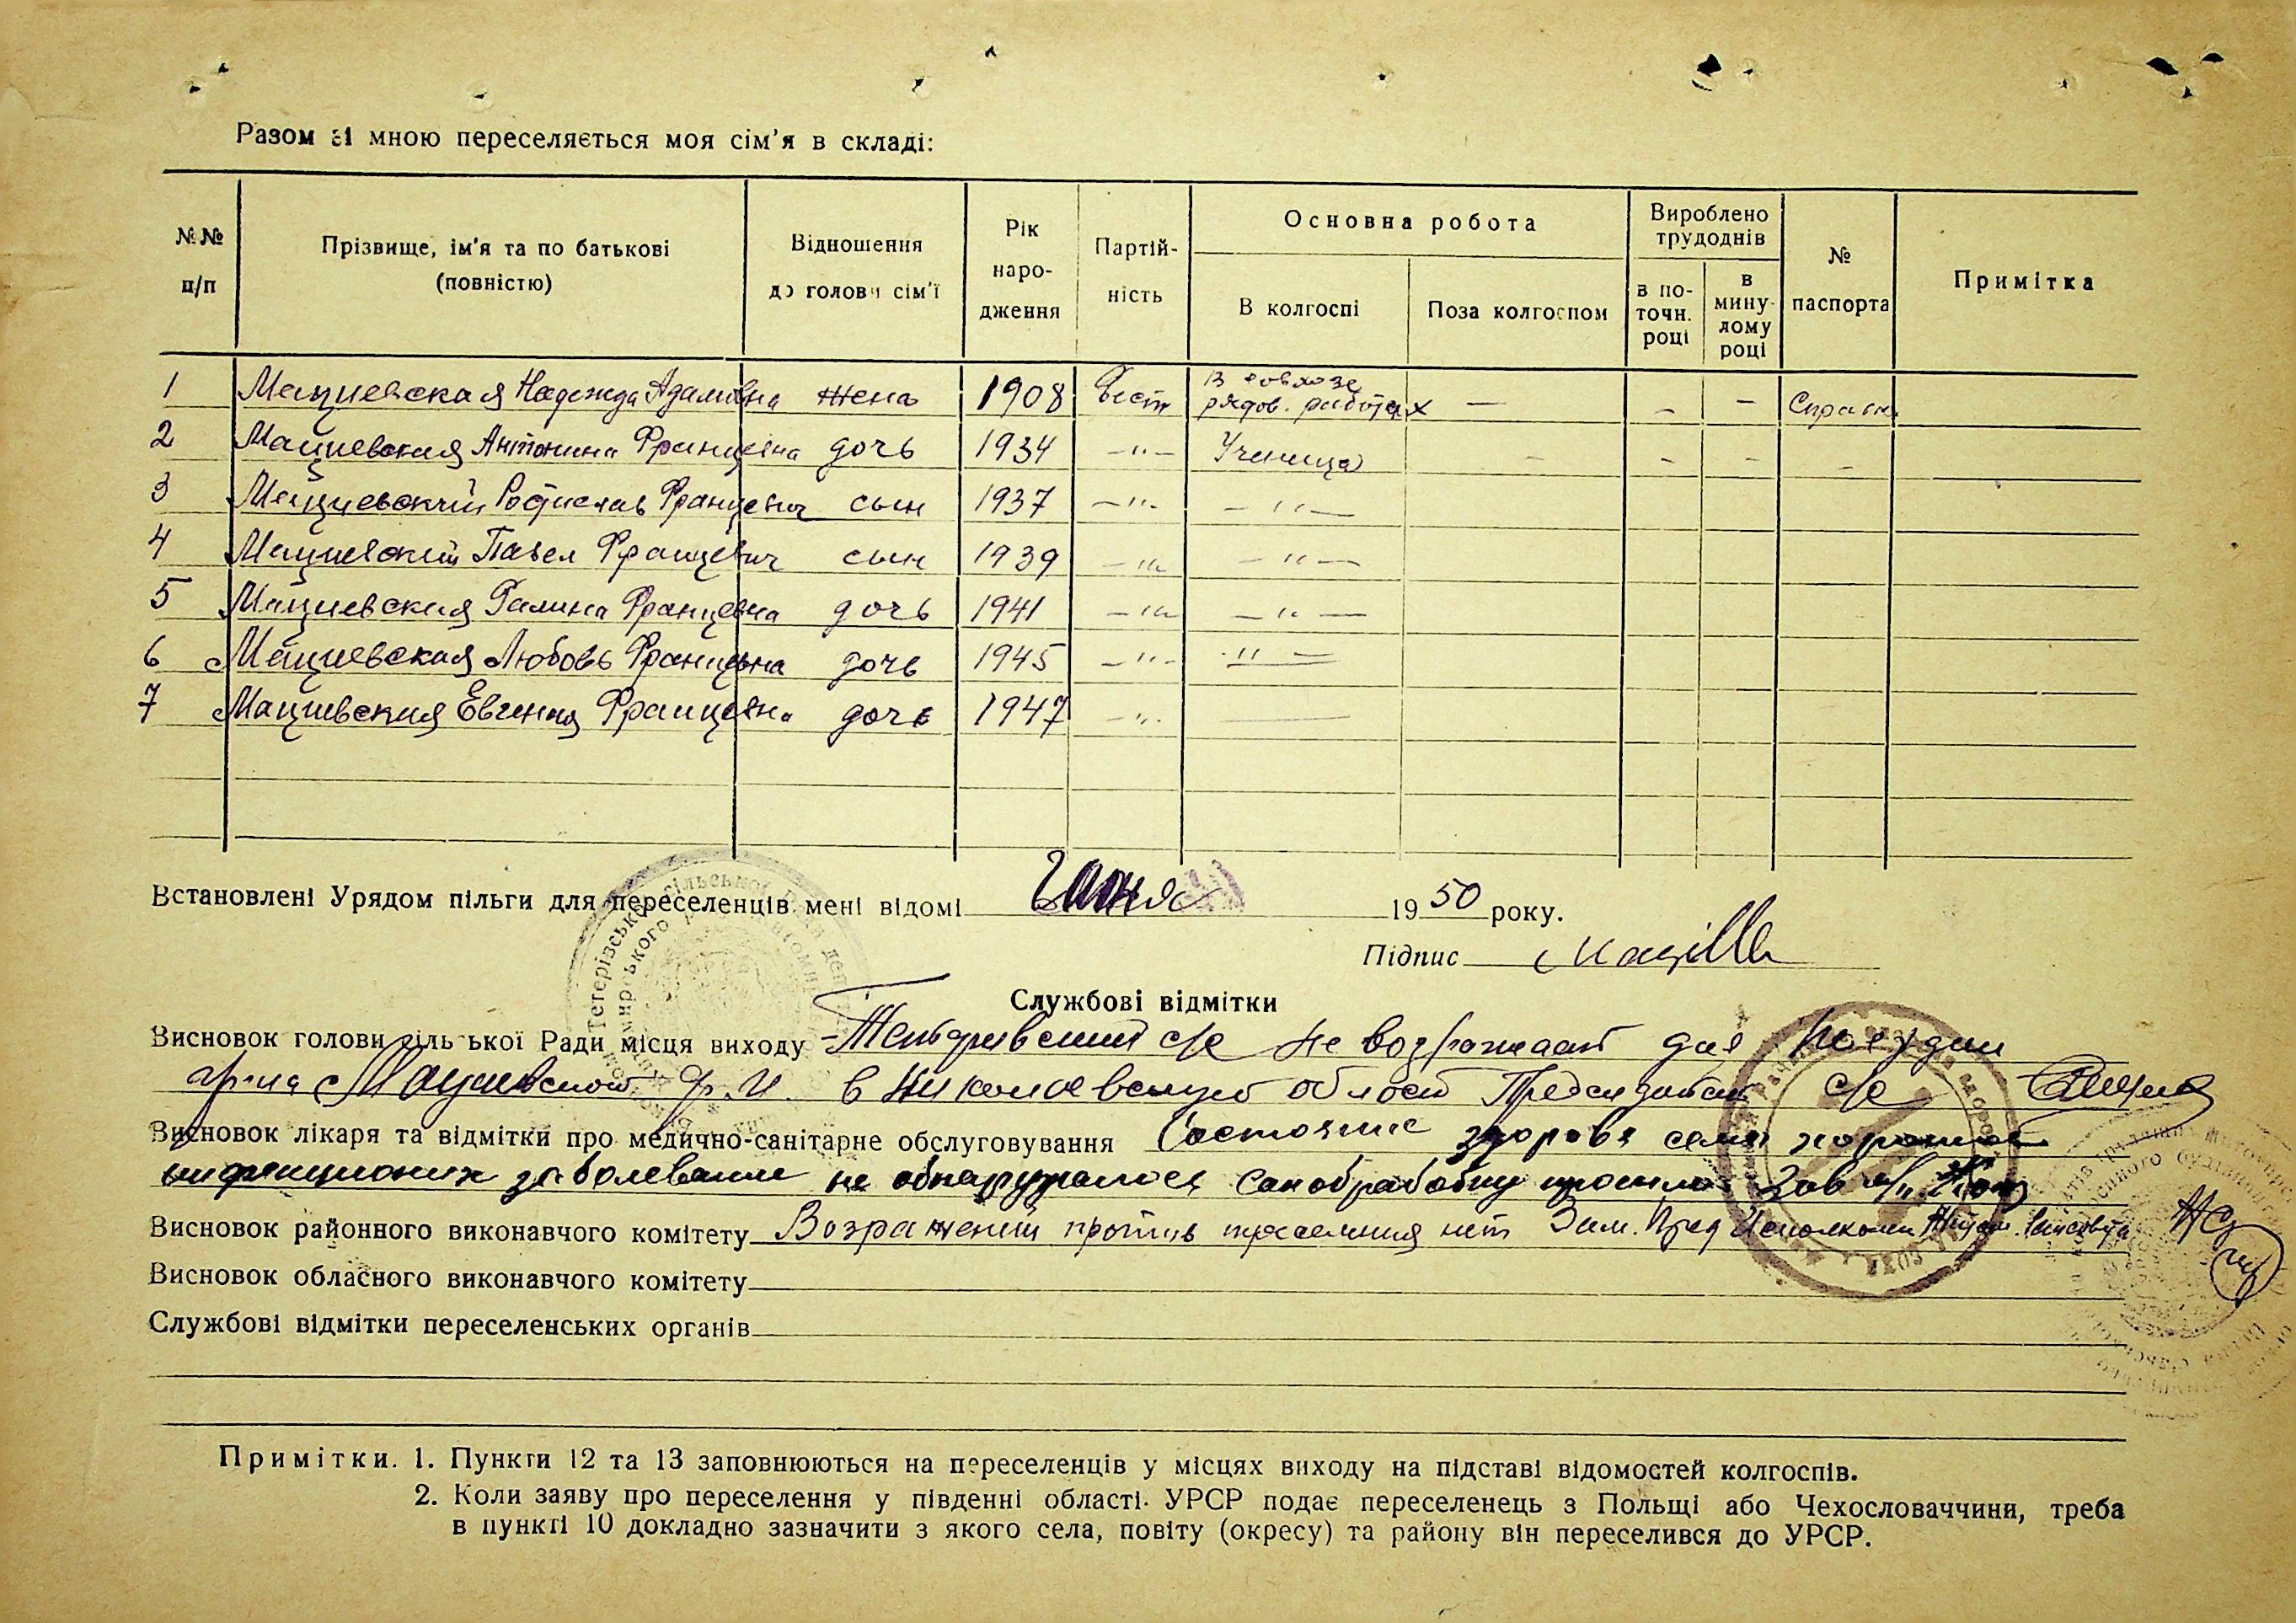 Разом зі мною переселяється моя сім'я в складі:
№№ п/п
Прізвище, ім'я та по батькові (повністю)
Відношення до голови сім'ї
Рік народження
Партійність
Основна робота
В колгоспі
Поза колгоспом
Вироблено трудоднів
в поточн. році
в минулому році
№ паспорта
Примітка
1 Мациевская Надежда Адамовна жена 1908 Бесп В совхозе рядов. работах — – – Справк
2 Мациевская Антонина Францевна дочь 1934 –"– Ученица – – – –
3 Мациевский Ростислав Францевич сын 1937 –"– –"–
4 Мациевский Павел Францевич сын 1939 –"– –"–
5 Мациевская Галина Францевна дочь 1941 –"– –"–
6 Мациевская Любовь Францевна дочь 1945 –"– –"–
7 Мациевская Евгения Францевна дочь 1947 –"– —
Встановлені Урядом пільги для переселенців мені відомі июня 1950 року.
Підпис
Службові відмітки
Висновок голови сільської Ради місця виходу Тетеривский с/с не возражает для поездки
гр-на Мациевского Ф. И. в Николаевскую област Председатель с/с
Висновок лікаря та відмітки про медично-санітарне обслуговування Состояние здоровя семи хорошое
инфекционих заболевании не обнаружилося санобработку прошли Зав
Висновок районного виконавчого комітету Возражений против переселения нет Зам. Пред Исполкома Райсовета
Висновок обласного виконавчого комітету
Службові відмітки переселенських органів
Примітки. 1. Пункти 12 та 13 заповнюються на переселенців у місцях виходу на підставі відомостей колгоспів.
2. Коли заяву про переселення у південні області УРСР подає переселенець з Польщі або Чехословаччини, треба
в пункті 10 докладно зазначити з якого села, повіту (окресу) та району він переселився до УРСР.